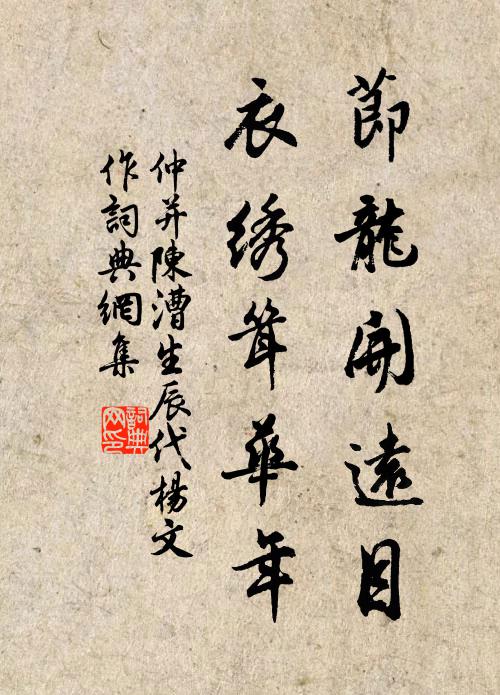 節龍開遠目
衣綉耸華年
仲并陳漕生辰代楊文
作詞典網集
詞典網印